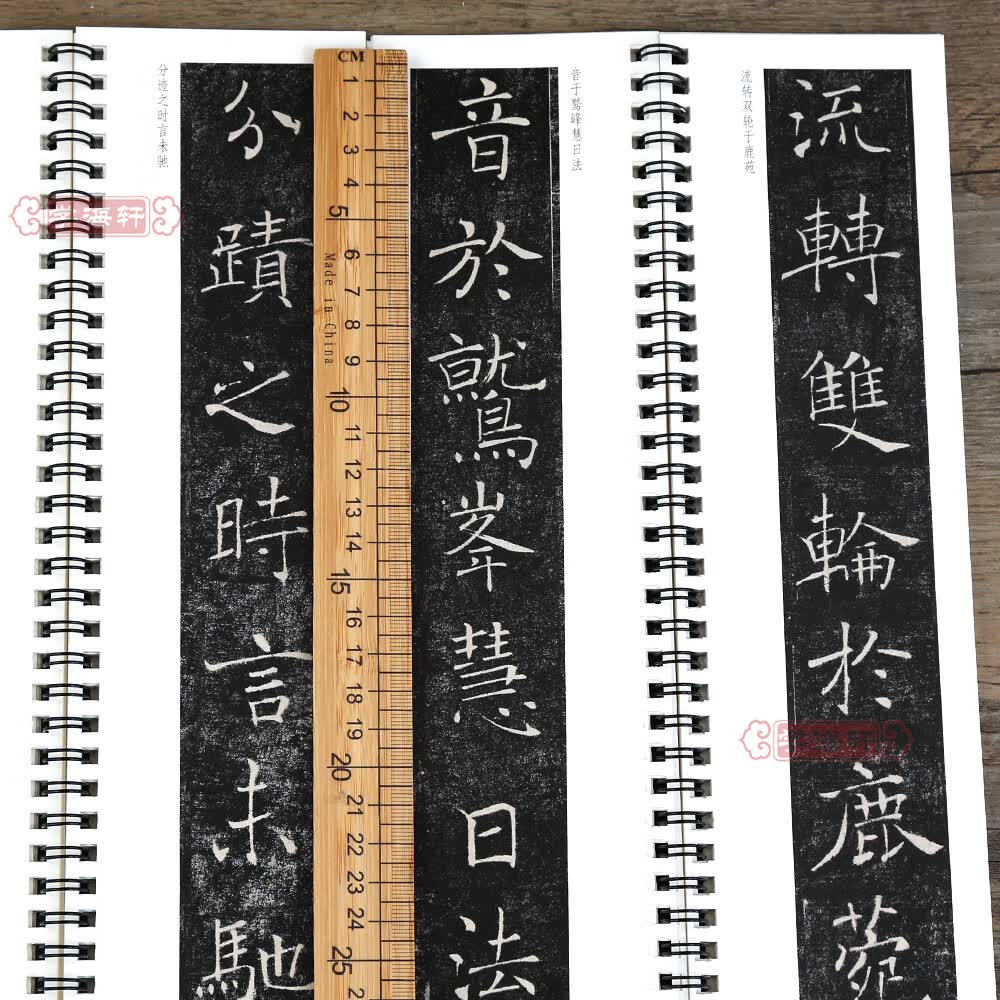 分迹之时言未驰
分蹟之時言未馳
CM
1
2
3
4
5
6
7
8
9
10
11
12
13
14
15
16
17
18
19
20
21
22
23
24
25
2
Made in China
音于鹫峰慧日法
音於鷲峯慧日法
流转双轮于鹿苑
流轉雙輪於鹿菀
海轩
海轩